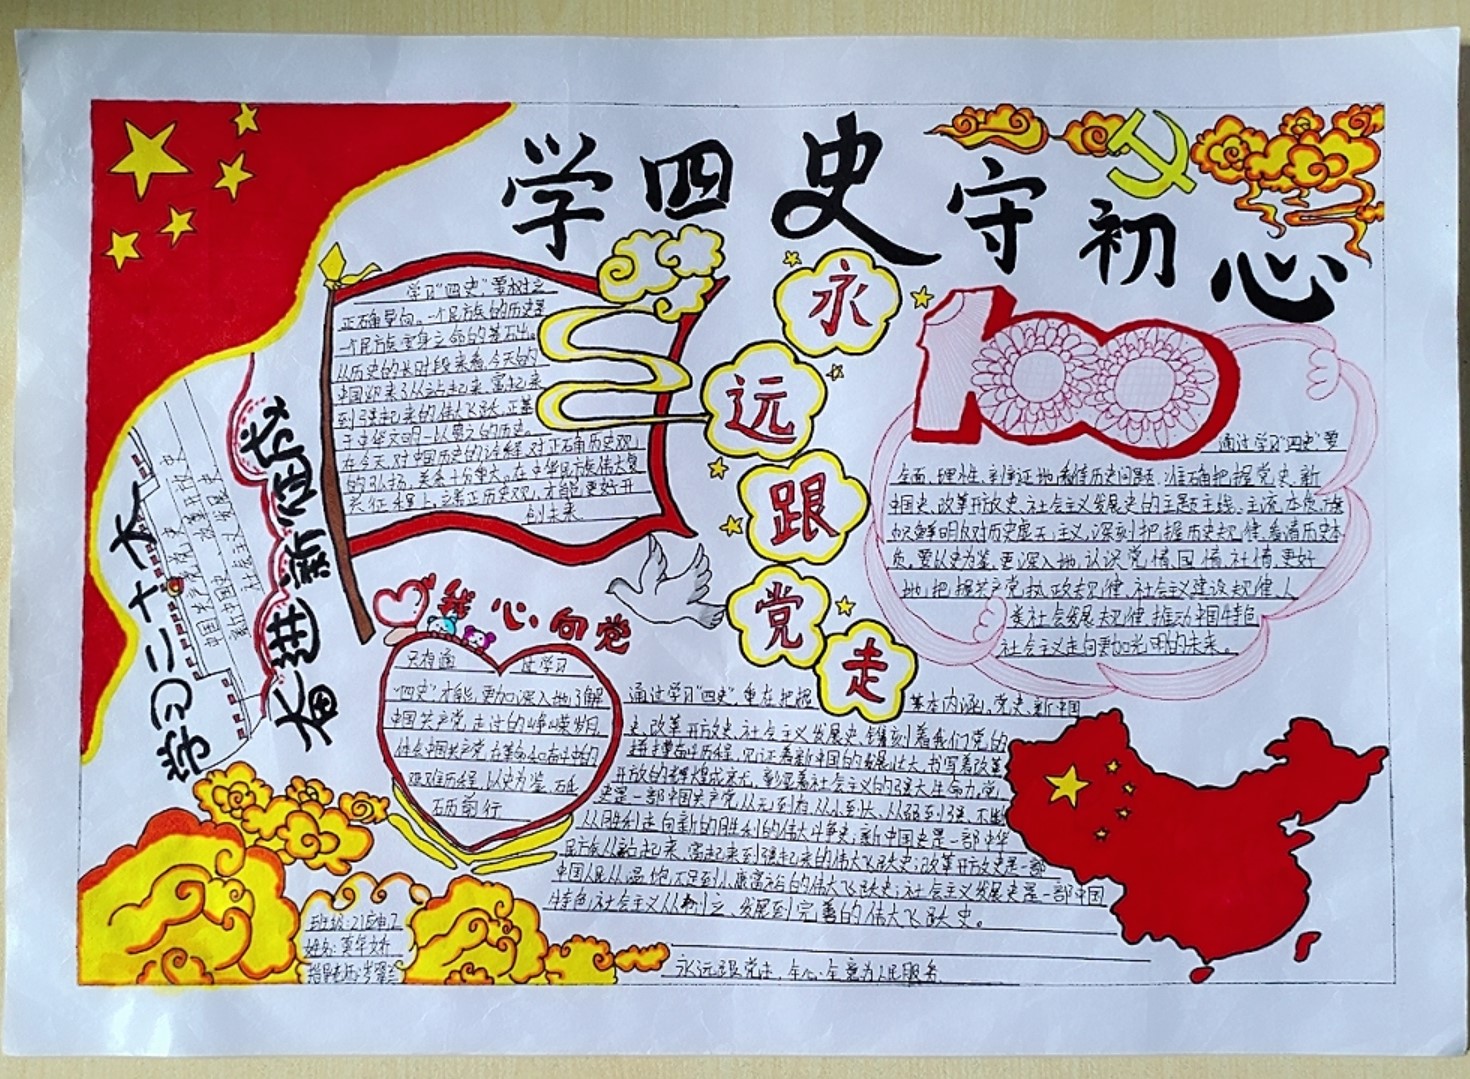 学四史守初心
永远跟党走
100
学习二十大
奋进新征程
中国共产党历史
新中国史 改革开放史
社会主义发展史
学习“四史”,要树立
正确导向。一个民族的历史是
一个民族安身立命的基石出。
从历史的长时段来看,今天的
中国迎来了从站起来、富起来
到强起来的伟大飞跃,正基
于中华文明一以贯之的历史。
在今天,对中国历史的诠释,对正确历史观
的弘扬,关系十分重大。在中华民族伟大复
兴征程上,立起正历史观,才能更好开
创未来
我心向党
只有通过学习
“四史”才能更加深入地了解
中国共产党走过的峥嵘岁月,
体会中国共产党在革命和奋斗的
艰难历程,以史为鉴,砥
砺前行
通过学习“四史”要
全面、理性、辩证地看待历史问题,准确把握党史、新
中国史、改革开放史、社会主义发展史的主题主线、主流本质,旗
帜鲜明反对历史虚无主义,深刻把握历史规律,看清历史本
质,要以史为鉴,更深入地认识党情、国情、社情,更好
地把握共产党执政规律、社会主义建设规律、人
类社会发展规律,推动中国特色
社会主义走向更加光明的未来。
通过学习“四史”,重在把握基本内涵,党史、新中国
史、改革开放史、社会主义发展史镌刻着我们党的
接续奋斗历程,见证着新中国的发展壮大,书写着改革
开放的辉煌成就,彰显着社会主义的强大生命力,党
史是一部中国共产党从无到有、从小到大、从弱到强、不断
从胜利走向新的胜利的伟大斗争史;新中国史是一部中华
民族从站起来、富起来到强起来的伟大飞跃史;改革开放史是一部
中国人民从温饱不足到小康富裕的伟大飞跃史;社会主义发展史是一部中国
特色社会主义从创立、发展到完善的伟大飞跃史。
永远跟党走,全心全意为人民服务
班级:215电
姓名:莫华娇
指导老师:岁翠兰